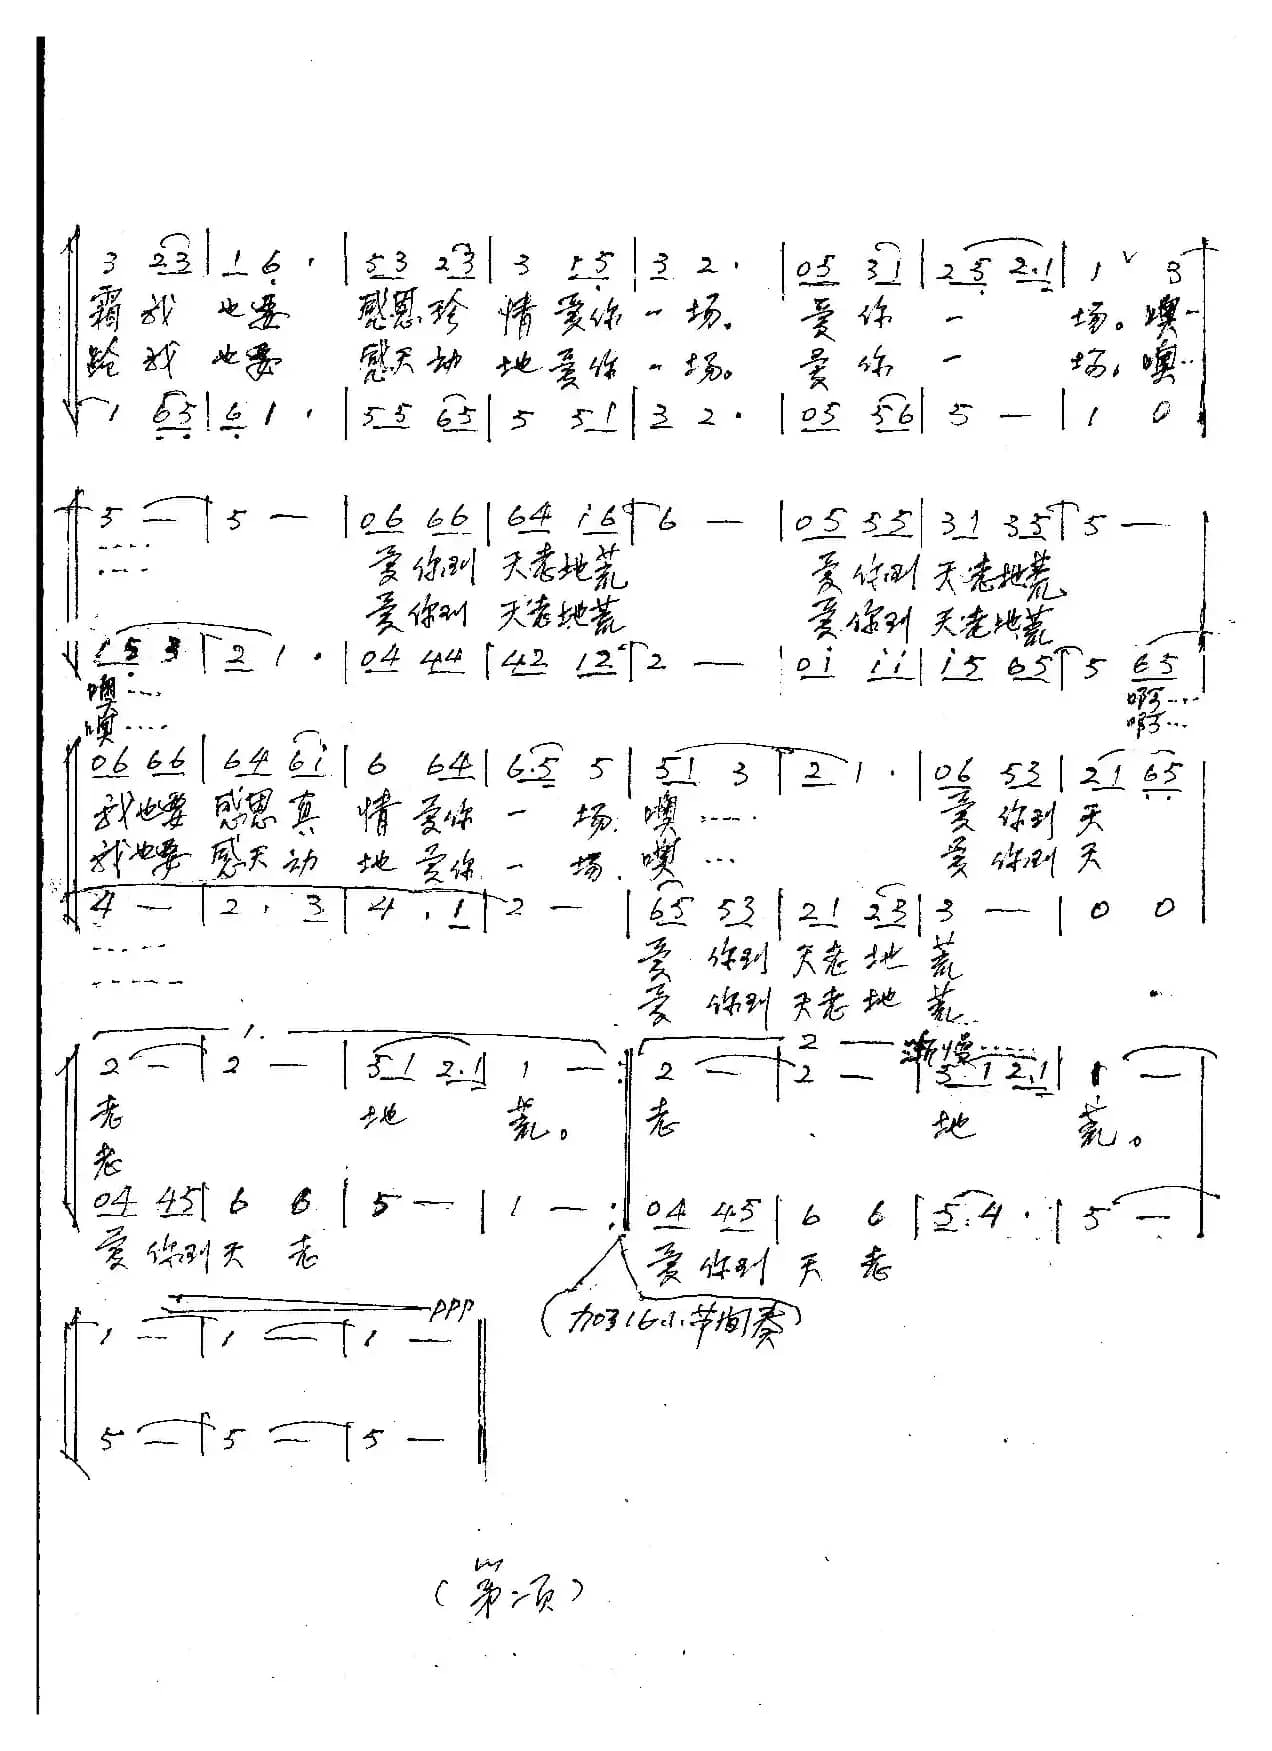 3 23 | 1 6 · | 53 23 | 3 15 | 3 2 · | 05 31 | 25 2·1 | 1 ∨ 3
霜我 也要 感恩珍 情爱你一场。 爱你 一 场。噢…
我 也要 感天动 地爱你一场。 爱你 一 场。噢…
1 65 | 6 1 · | 55 65 | 5 51 | 3 2 · | 05 56 | 5 — | 1 0
5 — | 5 — | 06 66 | 64 i6 | 6 — | 05 55 | 31 35 | 5 —
…… 爱你到 天老地荒 爱你到 天老地荒
…… 爱你到 天老地荒 爱你到 天老地荒
15 3 | 2 1 · | 04 44 | 42 12 | 2 — | 0i ii | i5 65 | 5 65
噢…… 啊……
噢…… 啊……
06 66 | 64 6i | 6 64 | 6·5 5 | 51 3 | 2 1 · | 06 53 | 21 65
我也要 感恩真 情 爱你 一 场. 噢…… 爱 你到 天
我也要 感天动 地 爱你 一 场. 噢… 爱 你到 天
4 — | 2 · 3 | 4 · 1 | 2 — | 65 53 | 21 23 | 3 — | 0 0
…… 爱 你到 天老 地 荒
…… 爱 你到 天老 地 荒
1. 2 — 渐慢……
2 — | 2 — | 51 2·1 | 1 — :‖ 2 — | 2 — | 51 2·1 | 1 —
老 地 荒。 老 地 荒。
老
04 45 | 6 6 | 5 — | 1 — :‖ 04 45 | 6 6 | 5·4 · | 5 —
爱 你到 天 老 爱 你到 天 老
(加316小节间奏)
ppp
1 — | 1 — | 1 — ‖
5 — | 5 — | 5 — ‖
(第二页)